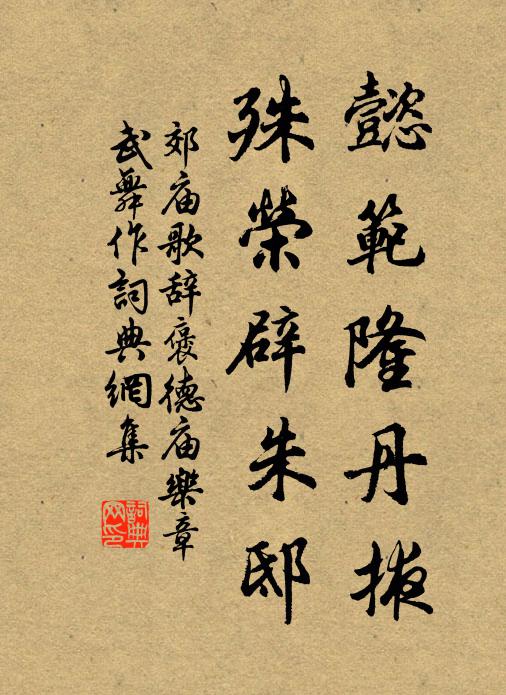 懿範隆丹掖
殊榮辟朱邸
郊庙歌辞褒德庙樂章
武舞作詞典網集
詞典网印